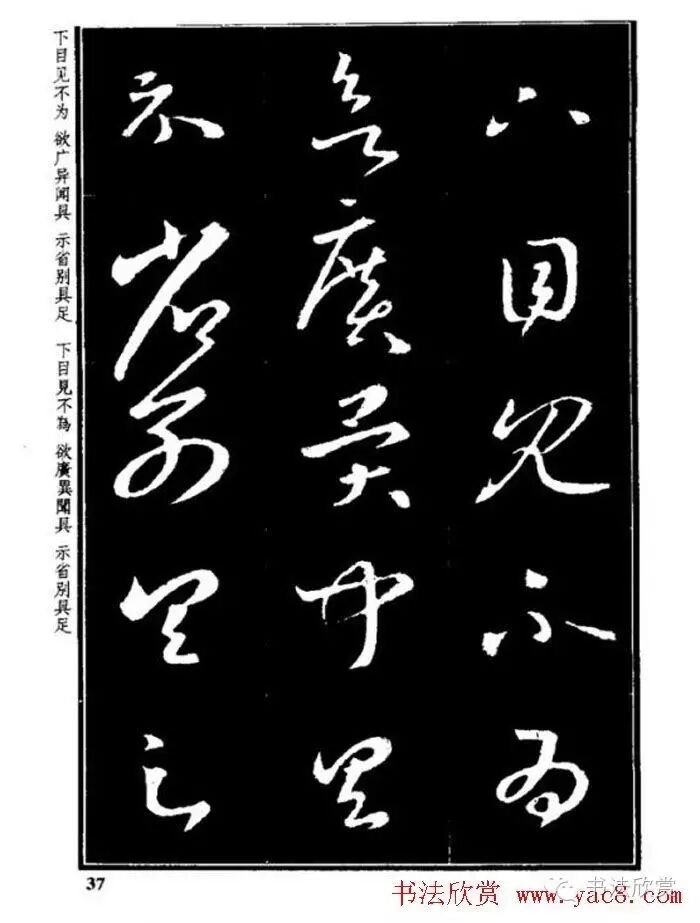 下目見不為
欲廣異聞具
示省別具足
下目见不为 欲广异闻具 示省别具足 下目見不為 欲廣異聞具 示省別具足
37
书法欣赏 www.yac8.com
书法欣赏